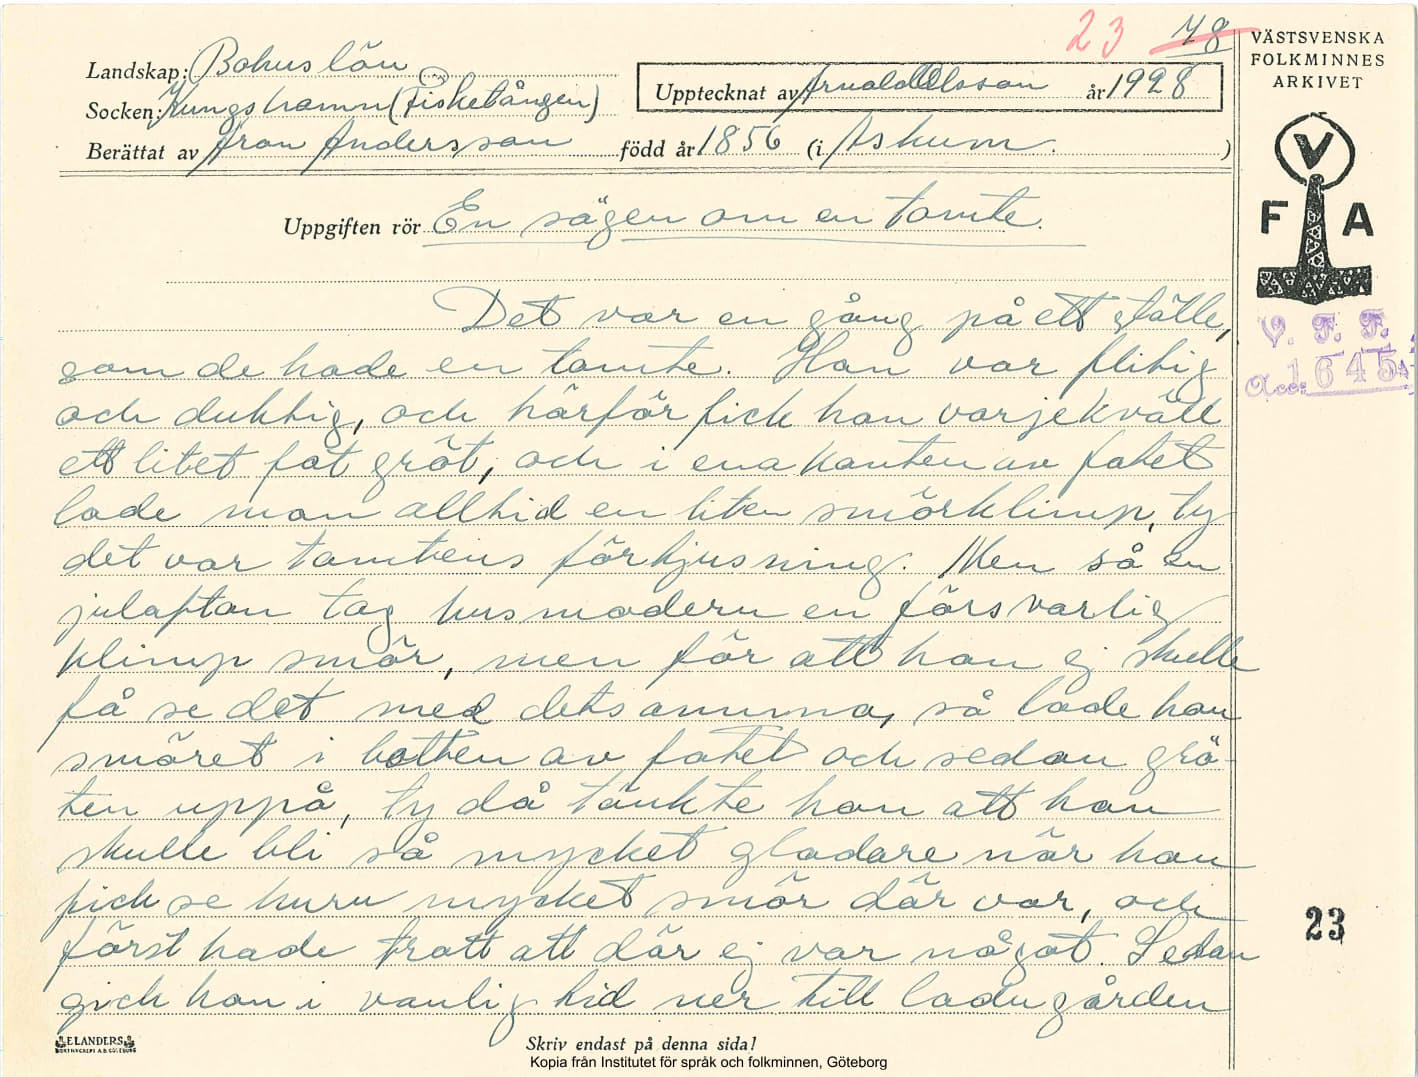 23 78
VÄSTSVENSKA
FOLKMINNES
ARKIVET
Landskap: Bohuslän
Socken: Kungshamn (Fisketången)
Upptecknat av Arnold Olsson år 1928
Berättat av Aron Andersson född år 1856 (i Askum.)
V
F A
Uppgiften rör En sägen om en tomte.
V. F. F.
Acc: 1645
Det var en gång på ett ställe,
som de hade en tomte. Han var flitig
och duktig, och härför fick han varje kväll
ett litet fat gröt, och i ena kanten av fatet
lade man alltid en liten smörklimp, ty
det var tomtens förtjusning. Men så en
julafton tog husmodern en försvarlig
klimp smör, men för att han ej skulle
få se det med detsamma, så lade hon
smöret i botten av fatet och sedan grö-
ten uppå, ty då tänkte hon att han
skulle bli så mycket gladare när han
fick se huru mycket smör där var, och
först hade trott att där ej var något. Sedan
gick hon i vanlig tid ner till ladugården
23
ELANDERS
Skriv endast på denna sida!
Kopia från Institutet för språk och folkminnen, Göteborg